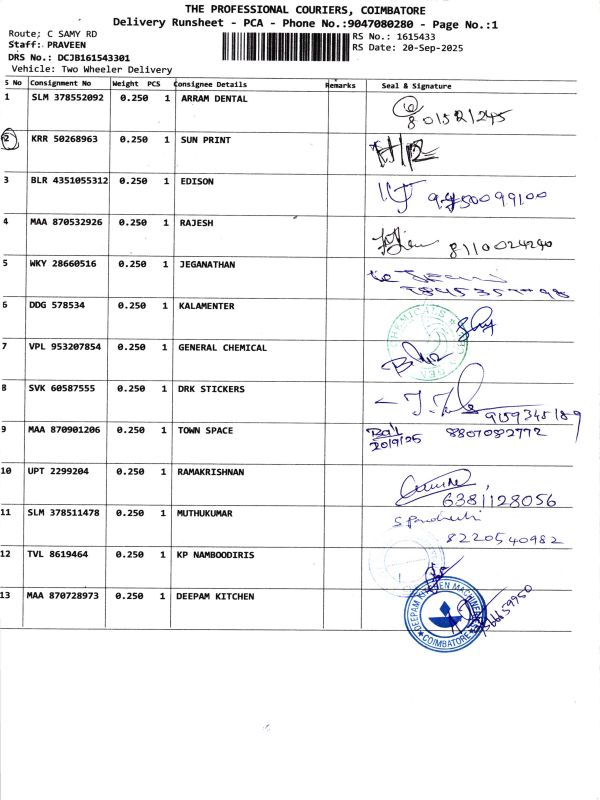 THE PROFESSIONAL COURIERS, COIMBATORE
Delivery Runsheet - PCA - Phone No.:9047080280 - Page No.:1
Route; C SAMY RD
RS No.: 1615433
Staff: PRAVEEN
RS Date: 20-Sep-2025
DRS No.: DCJB161543301
Vehicle: Two Wheeler Delivery
S No Consignment No Weight PCS Consignee Details Remarks Seal & Signature
1 SLM 378552092 0.250 1 ARRAM DENTAL
2 KRR 50268963 0.250 1 SUN PRINT
3 BLR 4351055312 0.250 1 EDISON
4 MAA 870532926 0.250 1 RAJESH 8110024290
5 WKY 28660516 0.250 1 JEGANATHAN
6 DDG 578534 0.250 1 KALAMENTER
CHEMICALS
7 VPL 953207854 0.250 1 GENERAL CHEMICAL
8 SVK 60587555 0.250 1 DRK STICKERS 9159345189
9 MAA 870901206 0.250 1 TOWN SPACE 8807082772
20/9/25
10 UPT 2299204 0.250 1 RAMAKRISHNAN 6381128056
11 SLM 378511478 0.250 1 MUTHUKUMAR
8220540982
12 TVL 8619464 0.250 1 KP NAMBOODIRIS
13 MAA 870728973 0.250 1 DEEPAM KITCHEN
DEEPAM KITCHEN
COIMBATORE